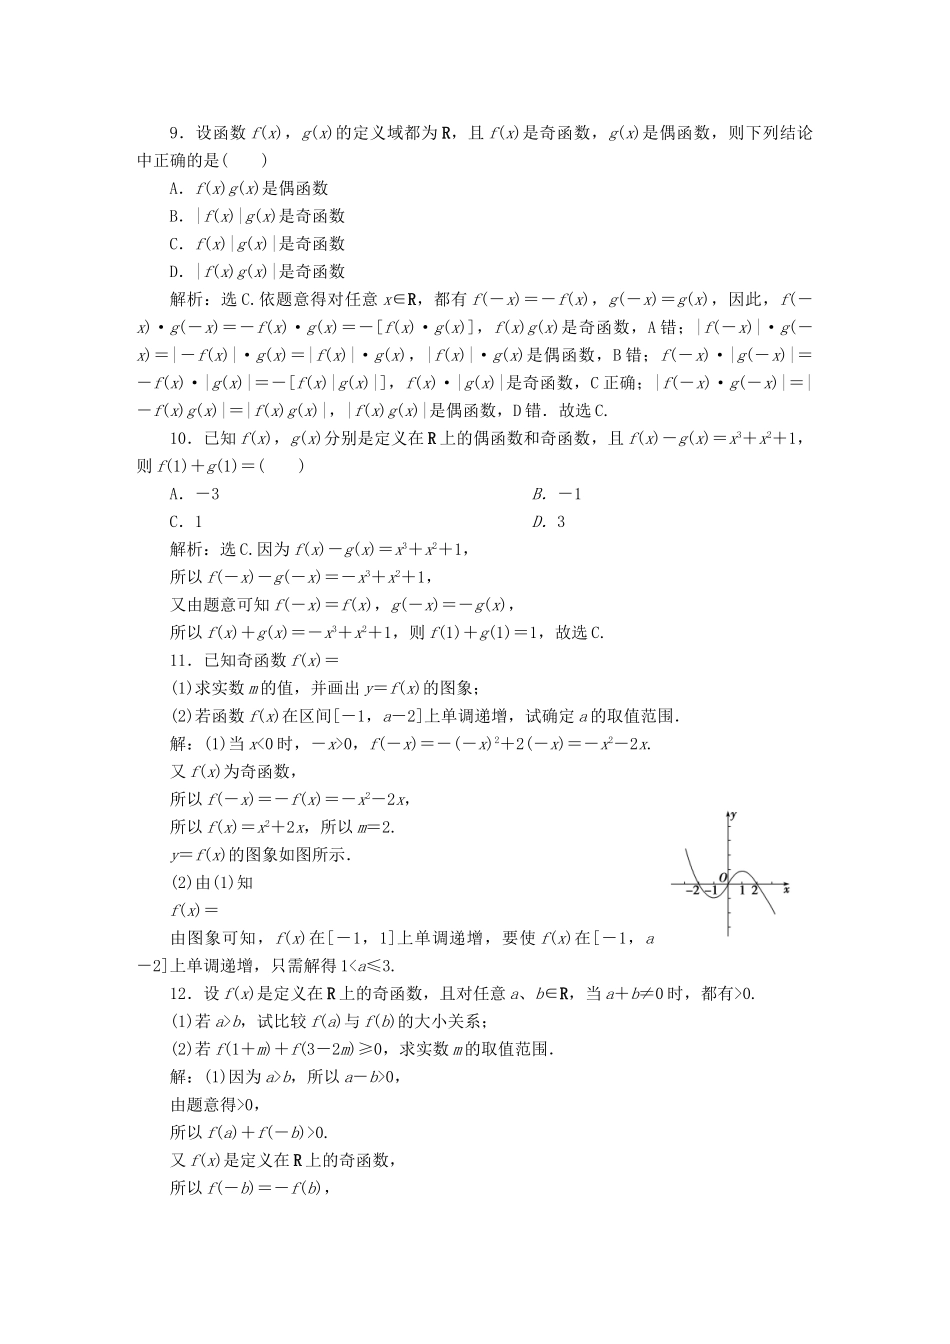 9．设函数 f(x)，g(x)的定义域都为 R，且 f(x)是奇函数，g(x)是偶函数，则下列结论
中正确的是(　　)
A．f(x)g(x)是偶函数
B．|f(x)|g(x)是奇函数
C．f(x)|g(x)|是奇函数
D．|f(x)g(x)|是奇函数
解析：选 C.依题意得对任意 x∈R，都有 f(－x)＝－f(x)，g(－x)＝g(x)，因此，f(－
x)·g(－x)＝－f(x)·g(x)＝－[f(x)·g(x)]，f(x)g(x)是奇函数，A 错；|f(－x)|·g(－
x)＝|－f(x)|·g(x)＝|f(x)|·g(x)，|f(x)|·g(x)是偶函数，B 错；f(－x)·|g(－x)|＝
－f(x)·|g(x)|＝－[f(x)|g(x)|]，f(x)·|g(x)|是奇函数，C 正确；|f(－x)·g(－x)|＝|
－f(x)g(x)|＝|f(x)g(x)|，|f(x)g(x)|是偶函数，D 错．故选 C.
10．已知 f(x)，g(x)分别是定义在 R 上的偶函数和奇函数，且 f(x)－g(x)＝x³＋x²＋1，
则 f(1)＋g(1)＝(　　)
A．－3　　B．－1
C．1　　D．3
解析：选 C.因为 f(x)－g(x)＝x³＋x²＋1，
所以 f(－x)－g(－x)＝－x³＋x²＋1，
又由题意可知 f(－x)＝f(x)，g(－x)＝－g(x)，
所以 f(x)＋g(x)＝－x³＋x²＋1，则 f(1)＋g(1)＝1，故选 C.
11．已知奇函数 f(x)＝
(1)求实数 m 的值，并画出 y＝f(x)的图象；
(2)若函数 f(x)在区间[－1，a－2]上单调递增，试确定 a 的取值范围．
解：(1)当 x<0 时，－x>0，f(－x)＝－(－x)²＋2(－x)＝－x²－2x.
又 f(x)为奇函数，
所以 f(－x)＝－f(x)＝－x²－2x，
所以 f(x)＝x²＋2x，所以 m＝2.
y＝f(x)的图象如图所示．
(2)由(1)知
f(x)＝
y
O
－2 －1 1 2 x
由图象可知，f(x)在[－1，1]上单调递增，要使 f(x)在[－1，a
－2]上单调递增，只需解得 1<a≤3.
12．设 f(x)是定义在 R 上的奇函数，且对任意 a、b∈R，当 a＋b≠0 时，都有>0.
(1)若 a>b，试比较 f(a)与 f(b)的大小关系；
(2)若 f(1＋m)＋f(3－2m)≥0，求实数 m 的取值范围．
解：(1)因为 a>b，所以 a－b>0，
由题意得>0，
所以 f(a)＋f(－b)>0.
又 f(x)是定义在 R 上的奇函数，
所以 f(－b)＝－f(b)，